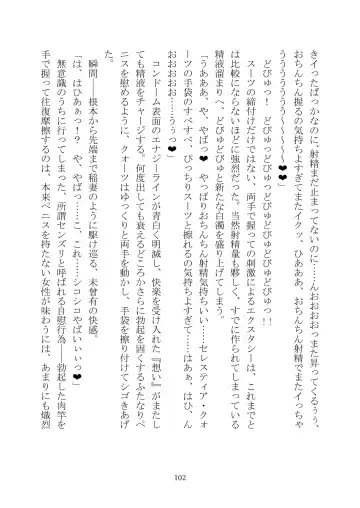 きイったばっかなのに、射精まだ止まってないのに……んおおおおっまた昇ってくるぅぅ、
おちんちん握るの気持ちよすぎてまたイクッ、ひああああ、おちんちん射精でまたイっちゃ
ううううううう~~~~~~❤❤」
　どびゅっ！　どびゅっどびゅどびゅどびゅどびゅどびゅっ！！
　スーツの締付けだけではない、両手で握っての刺激によるエクスタシーは、これまでと
は比較にならないほどに強烈だった。当然射精量も夥しく、すでに作られてしまっている
精液溜まりへ、どびゅどびゅと新たな白濁を盛り上げてしまう。
「うあああ、や、やばっ❤　やっぱりおちんちん射精気持ちいい……セレスティア・クォ
ーツの手袋のすべすべ、ぴっちりスーツと擦れるの気持ちよすぎて……はあぁ、はひ、ん
おおおおお……うぅっ❤」
　コンドーム表面のエナジーラインが青白く明滅し、快楽を受け入れた『想い』がまたし
ても精液をチャージする。何度出しても衰えるどころかさらに勃起を固くするふたなりペ
ニスを慰めるように、クォーツはゆっくりと両手を動かし、手袋を擦り付けてシゴきあげ
た。
　瞬間――根本から先端まで稲妻のように駆け巡る、未曾有の快感。
「は、はひあぁっ！？　や、やばっ……こ、これ……シコシコやばいぃぃっ❤」
　無意識のうちに行ってしまった、所謂センズリと呼ばれる自慰行為――勃起した肉竿を
手で握って往復摩擦するのは、本来ペニスを持たない女性が味わうには、あまりにも熾烈
102